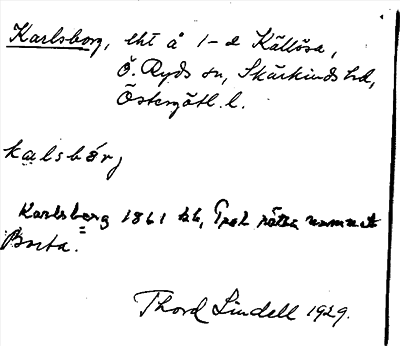 Karlsborg, lht å 1-e Källösa,
Ö. Ryds sn, Skärkinds hd,
Östergötl. l.
kalsbårj
Karlsberg 1861 kb, rätta namnet
Borta.
Thord Lindell 1929.